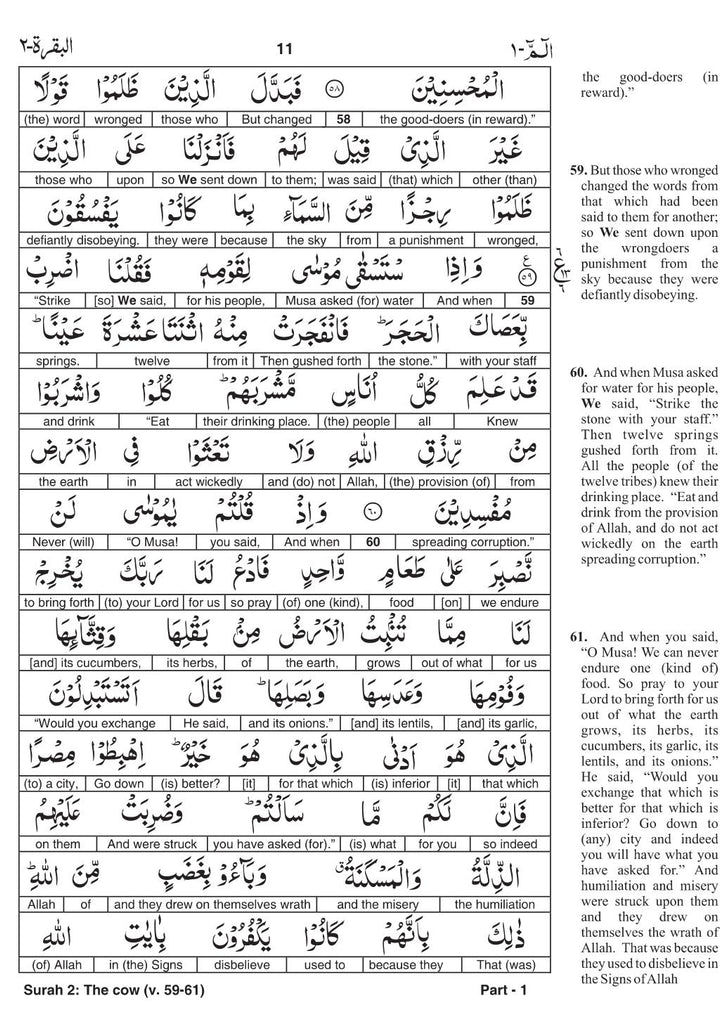 البقرة-٢ 11 الٓمّٓ-١
الْمُحْسِنِيْنَ ٥٨ فَبَدَّلَ الَّذِيْنَ ظَلَمُوْا قَوْلًا
(the) word wronged those who But changed 58 the good-doers (in reward).”
غَيْرَ الَّذِىْ قِيْلَ لَهُمْ فَاَنْزَلْنَا عَلَى الَّذِيْنَ
those who upon so We sent down to them; was said (that) which other (than)
ظَلَمُوْا رِجْزًا مِّنَ السَّمَآءِ بِمَا كَانُوْا يَفْسُقُوْنَ
defiantly disobeying. they were because the sky from a punishment wronged,
ع ٥٩ وَاِذِ اسْتَسْقٰى مُوْسٰى لِقَوْمِهٖ فَقُلْنَا اضْرِبْ
“Strike [so] We said, for his people, Musa asked (for) water And when 59
بِّعَصَاكَ الْحَجَرَ ؕ فَانْفَجَرَتْ مِنْهُ اثْنَتَا عَشْرَةَ عَيْنًا ؕ
springs. twelve from it Then gushed forth the stone.” with your staff
قَدْ عَلِمَ كُلُّ اُنَاسٍ مَّشْرَبَهُمْ ؕ كُلُوْا وَاشْرَبُوْا
and drink “Eat their drinking place. (the) people all Knew
مِنْ رِّزْقِ اللّٰهِ وَلَا تَعْثَوْا فِى الْاَرْضِ
the earth in act wickedly and (do) not Allah, (the) provision (of) from
مُفْسِدِيْنَ ٦٠ وَاِذْ قُلْتُمْ يٰمُوْسٰى لَنْ
Never (will) “O Musa! you said, And when 60 spreading corruption.”
نَّصْبِرَ عَلٰى طَعَامٍ وَّاحِدٍ فَادْعُ لَنَا رَبَّكَ يُخْرِجْ
to bring forth (to) your Lord for us so pray (of) one (kind), food [on] we endure
لَنَا مِمَّا تُنْۢبِتُ الْاَرْضُ مِنْۢ بَقْلِهَا وَقِثَّآئِهَا
[and] its cucumbers, its herbs, of the earth, grows out of what for us
وَفُوْمِهَا وَعَدَسِهَا وَبَصَلِهَا ؕ قَالَ اَتَسْتَبْدِلُوْنَ
“Would you exchange He said, and its onions.” [and] its lentils, [and] its garlic,
الَّذِىْ هُوَ اَدْنٰى بِالَّذِىْ هُوَ خَيْرٌ ؕ اِهْبِطُوْا مِصْرًا
(to) a city, Go down (is) better? [it] for that which (is) inferior [it] that which
فَاِنَّ لَكُمْ مَّا سَاَلْتُمْ ؕ وَضُرِبَتْ عَلَيْهِمُ
on them And were struck you have asked (for).” (is) what for you so indeed
الذِّلَّةُ وَالْمَسْكَنَةُ وَبَآءُوْ بِغَضَبٍ مِّنَ اللّٰهِ ؕ
Allah of and they drew on themselves wrath and the misery the humiliation
ذٰلِكَ بِاَنَّهُمْ كَانُوْا يَكْفُرُوْنَ بِاٰيٰتِ اللّٰهِ
(of) Allah in (the) Signs disbelieve used to because they That (was)
Surah 2: The cow (v. 59-61) Part - 1
the good-doers (in
reward).”
59. But those who wronged
changed the words from
that which had been
said to them for another;
so We sent down upon
the wrongdoers a
punishment from the
sky because they were
defiantly disobeying.
60. And when Musa asked
for water for his people,
We said, “Strike the
stone with your staff.”
Then twelve springs
gushed forth from it.
All the people (of the
twelve tribes) knew their
drinking place. “Eat and
drink from the provision
of Allah, and do not act
wickedly on the earth
spreading corruption.”
61. And when you said,
“O Musa! We can never
endure one (kind of)
food. So pray to your
Lord to bring forth for us
out of what the earth
grows, its herbs, its
cucumbers, its garlic, its
lentils, and its onions.”
He said, “Would you
exchange that which is
better for that which is
inferior? Go down to
(any) city and indeed
you will have what you
have asked for.” And
humiliation and misery
were struck upon them
and they drew on
themselves the wrath of
Allah. That was because
they used to disbelieve in
the Signs of Allah